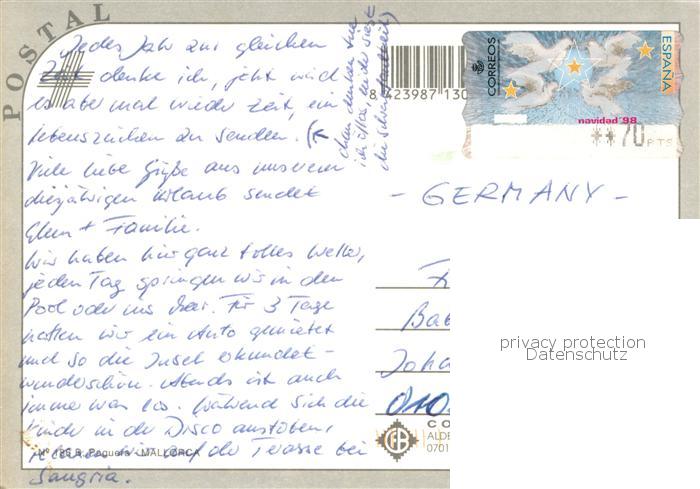 POSTAL
Jedes Jahr zur gleichen
Zeit denke ich, jetzt wird
es aber mal wieder Zeit, ein
Lebenszeichen zu senden. (↑
Viele liebe Grüße aus unserem
diesjährigen Urlaub sendet
+ Familie.
Wir haben hier ganz tolles Wetter,
jeden Tag springen wir in den
Pool oder ins Meer. Für 3 Tage
hatten wir ein Auto gemietet
und so die Insel erkundet -
wunderschön. Abends ist auch
immer was los. Während sich die
Kinder in der Disco austoben,
wir auf der Terasse bei
Sangria.
Nº 188 B. Paguera - MALLORCA
8 423987 130
CORREOS
ESPAÑA
navidad '98
**70 PTS
- GERMANY -
F
Ba
Joha
010
CO
ALDE
0701
privacy protection
Datenschutz